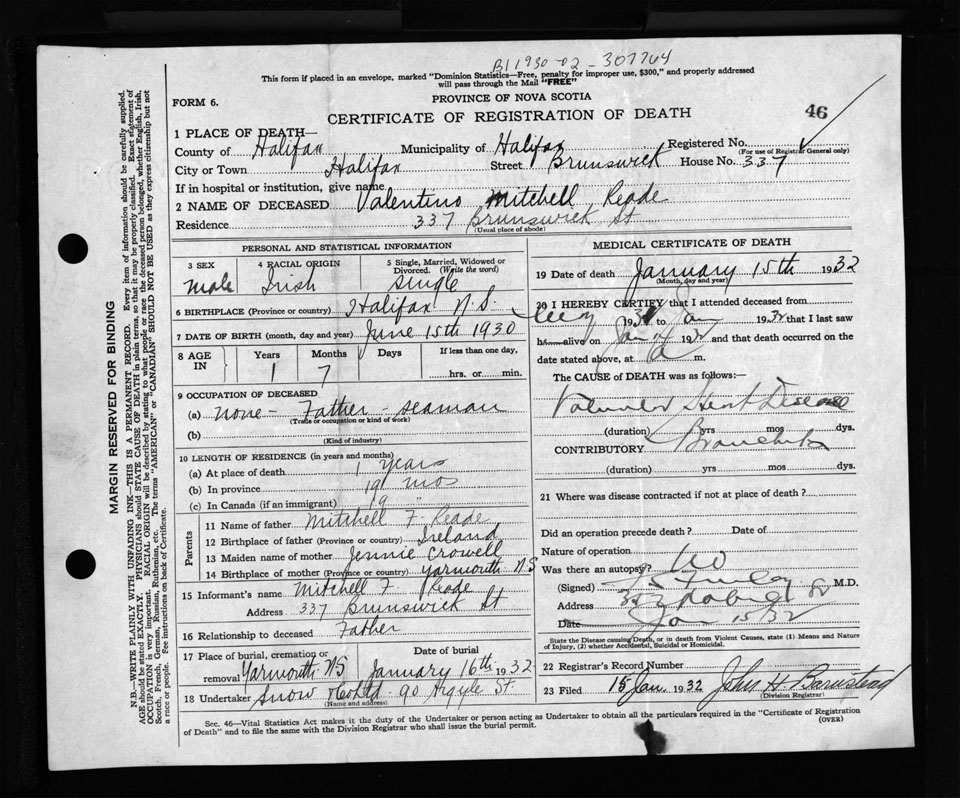 B11930-02-307764
This form if placed in an envelope, marked "Dominion Statistics—Free, penalty for improper use, $300," and properly addressed
will pass through the Mail "FREE"
FORM 6.
PROVINCE OF NOVA SCOTIA
CERTIFICATE OF REGISTRATION OF DEATH
46
1 PLACE OF DEATH—
County of Halifax Municipality of Halifax Registered No.
(For use of Registrar General only)
City or Town Halifax Street Brunswick House No. 337
If in hospital or institution, give name
2 NAME OF DECEASED Valentino Mitchell Reade
Residence 337 Brunswick St
(Usual place of abode)
PERSONAL AND STATISTICAL INFORMATION
3 SEX male
4 RACIAL ORIGIN Irish
5 Single, Married, Widowed or Divorced. (Write the word) single
6 BIRTHPLACE (Province or country) Halifax N.S.
7 DATE OF BIRTH (month, day and year) June 15th 1930
8 AGE IN Years 1 Months 7 Days If less than one day, hrs. or min.
9 OCCUPATION OF DECEASED
(a) none - Father - seaman
(Trade or occupation or kind of work)
(b)
(Kind of industry)
10 LENGTH OF RESIDENCE (in years and months)
(a) At place of death 1 years
(b) In province 19 mos
(c) In Canada (if an immigrant) 19 "
Parents
11 Name of father Mitchell F. Reade
12 Birthplace of father (Province or country) Ireland
13 Maiden name of mother Jennie Crowell
14 Birthplace of mother (Province or country) Yarmouth NS
15 Informant's name Mitchell F. Reade
Address 337 Brunswick St
16 Relationship to deceased Father
17 Place of burial, cremation or removal Yarmouth NS Date of burial January 16th 1932
18 Undertaker Snow & Co Ltd 90 Argyle St.
(Name and address)
MEDICAL CERTIFICATE OF DEATH
19 Date of death January 15th 1932
(Month, day and year)
20 I HEREBY CERTIFY that I attended deceased from
193 to Jan 1932 that I last saw
h alive on Jan 1932 and that death occurred on the
date stated above, at a m.
The CAUSE of DEATH was as follows:—
Valvular Heart Disease
(duration) yrs mos dys.
CONTRIBUTORY Bronchitis
(duration) yrs mos dys.
21 Where was disease contracted if not at place of death?
Did an operation precede death? Date of
Nature of operation
Was there an autopsy? No
(Signed) M.D.
Address
Date Jan 15/32
State the Disease causing Death, or in death from Violent Causes, state (1) Means and Nature
of Injury, (2) whether Accidental, Suicidal or Homicidal.
22 Registrar's Record Number
23 Filed 15 Jan. 1932 John H Barnstead
(Division Registrar)
Sec. 46—Vital Statistics Act makes it the duty of the Undertaker or person acting as Undertaker to obtain all the particulars required in the "Certificate of Registration
of Death" and to file the same with the Division Registrar who shall issue the burial permit.
(OVER)
MARGIN RESERVED FOR BINDING
N.B.—WRITE PLAINLY WITH UNFADING INK—THIS IS A PERMANENT RECORD. Every item of information should be carefully supplied.
AGE should be stated EXACTLY. PHYSICIANS should STATE CAUSE OF DEATH in plain terms, so that it may be properly classified. Exact statement of
OCCUPATION is very important. RACIAL ORIGIN will be described by stating to what people or race the deceased person belonged, whether English, Irish,
Scotch, French, German, Russian, Ruthenian, etc. The terms "AMERICAN" or "CANADIAN" SHOULD NOT BE USED as they express citizenship but not
a race or people. See instructions on back of Certificate.